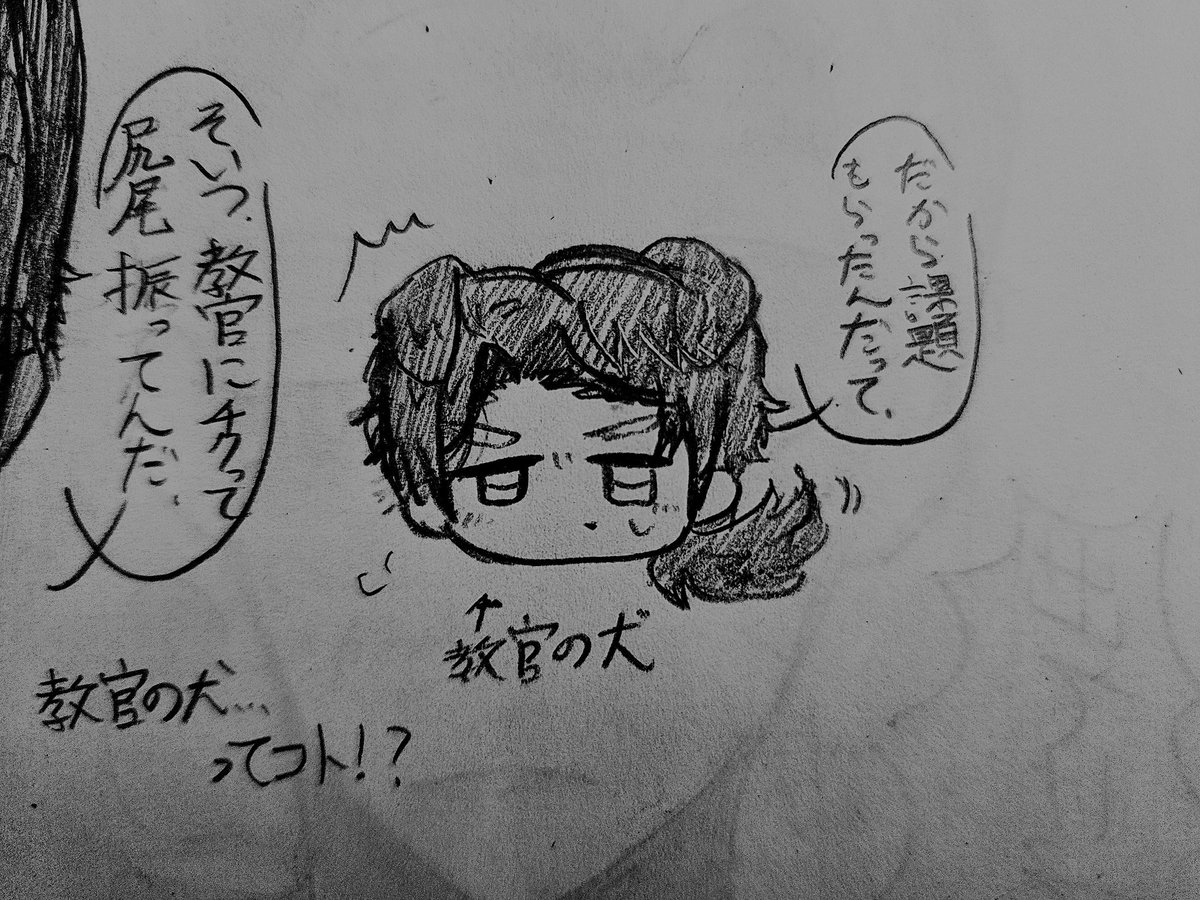 だから課題
もらったんだって、
そいつ、教官にチクって
尻尾振ってんだ、
教官の犬
教官の犬…
ってコト!?